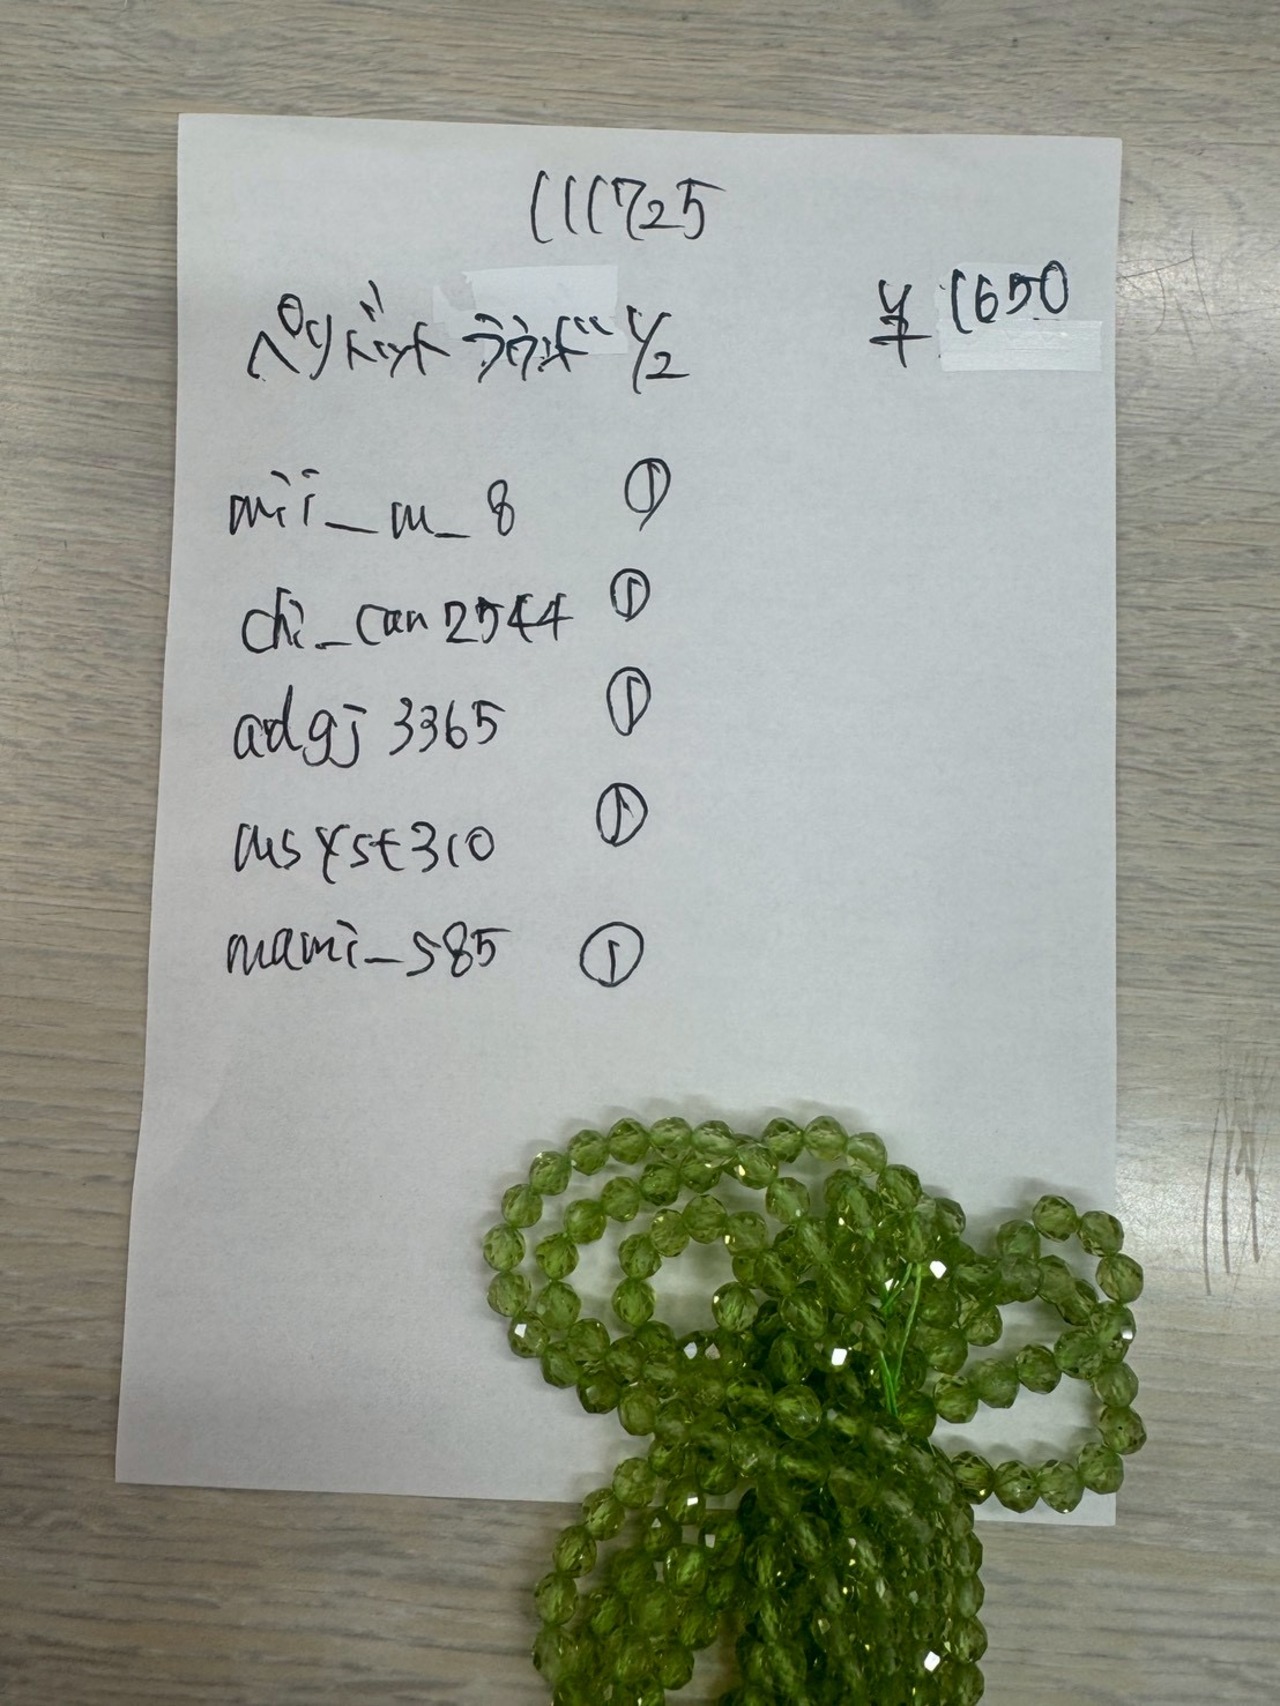 111725
ペリドットラウンド 1/2 ¥1650
mii_m_8 ①
chi_can2544 ①
adgj3365 ①
msyst310 ①
mami_s85 ①